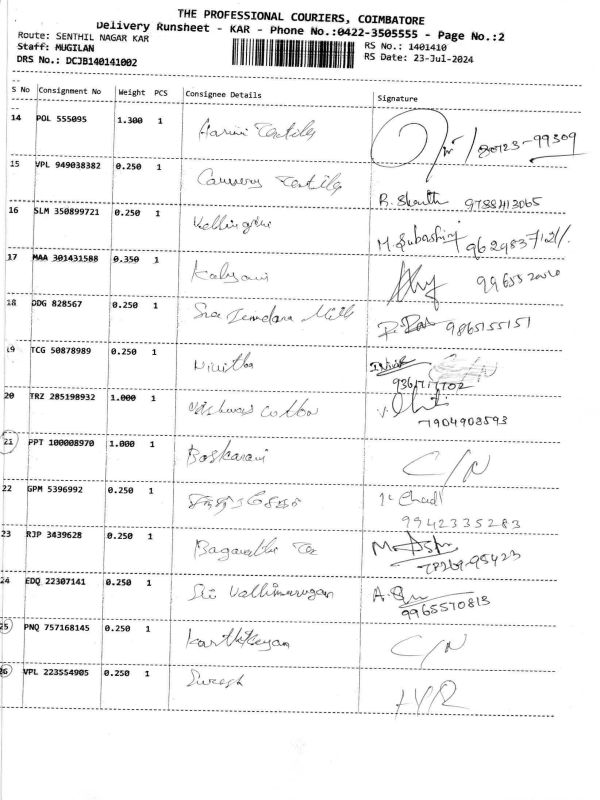 THE PROFESSIONAL COURIERS, COIMBATORE
Delivery Runsheet - KAR - Phone No.:0422-3505555 - Page No.:2
Route: SENTHIL NAGAR KAR
RS No.: 1401410
Staff: MUGILAN
RS Date: 23-Jul-2024
DRS No.: DCJB140141002
S No Consignment No Weight PCS Consignee Details Signature
14 POL 555095 1.300 1 Harini Textiles 80723-99309
15 VPL 949038382 0.250 1 Cauvery Textiles
R. Shanth
16 SLM 350899721 0.250 1
M. Subashini
17 MAA 301431588 0.350 1 Kalyani
18 DDG 828567 0.250 1 Mills 9865155151
19 TCG 50878989 0.250 1 Nivitha C/N
20 TRZ 285198932 1.000 1 Vishwas Cotton
7904908593
21 PPT 100008970 1.000 1 Baskarani C/N
22 GPM 5396992 0.250 1
9942335283
23 RJP 3439628 0.250 1 Bagavathi Tex
24 EDQ 22307141 0.250 1 Sri Vallimurugan
9965570813
25 PNQ 757168145 0.250 1 Karthikeyan C/N
26 VPL 223554905 0.250 1 Suresh